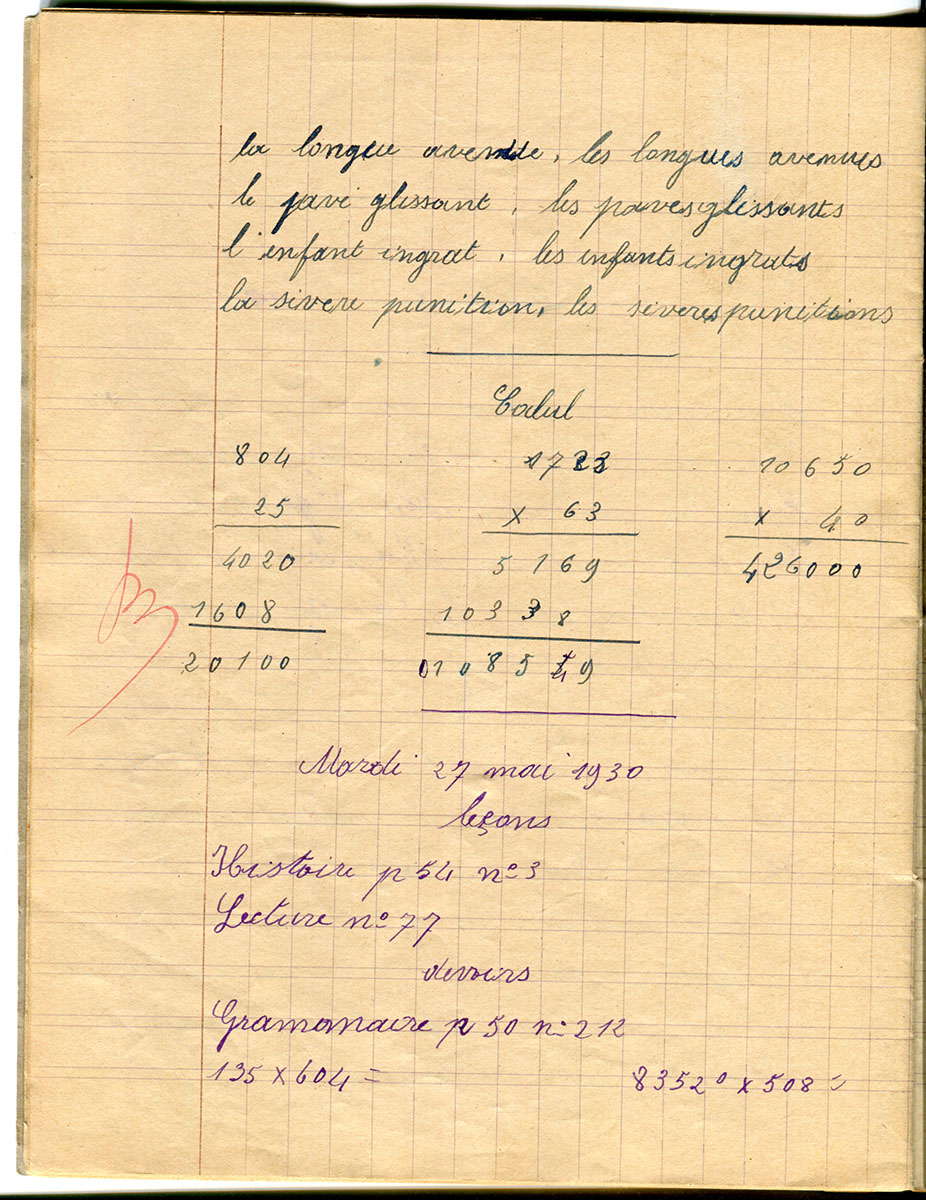 la longue avenue, les longues avenues
le pavé glissant, les paves glissants
l'enfant ingrat, les enfants ingrats
la severe punition, les severes punitions
Calcul
804 1723 10650
25 x 63 x 40
4020 5169 426000
1608 10338
20100 0108549
Mardi 27 mai 1930
leçons
Histoire p 54 n° 3
Lecture n° 77
devoirs
Grammaire p 50 n° 212
135 x 604 = 83520 x 508 =